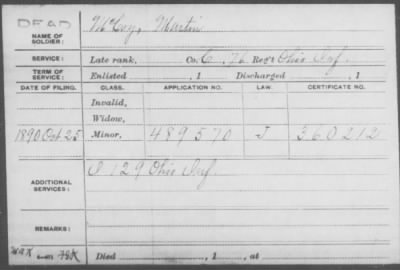 DEAD
NAME OF SOLDIER: McCoy, Martin
SERVICE: Late rank, Co. C, 76 Reg't Ohio Inf.
TERM OF SERVICE: Enlisted , 1 Discharged , 1
DATE OF FILING. CLASS. APPLICATION NO. LAW. CERTIFICATE NO.
Invalid,
Widow,
1890 Oct 25 Minor, 489570 J 360212
ADDITIONAL SERVICES: I 129 Ohio Inf.
REMARKS:
Died , 1 , at